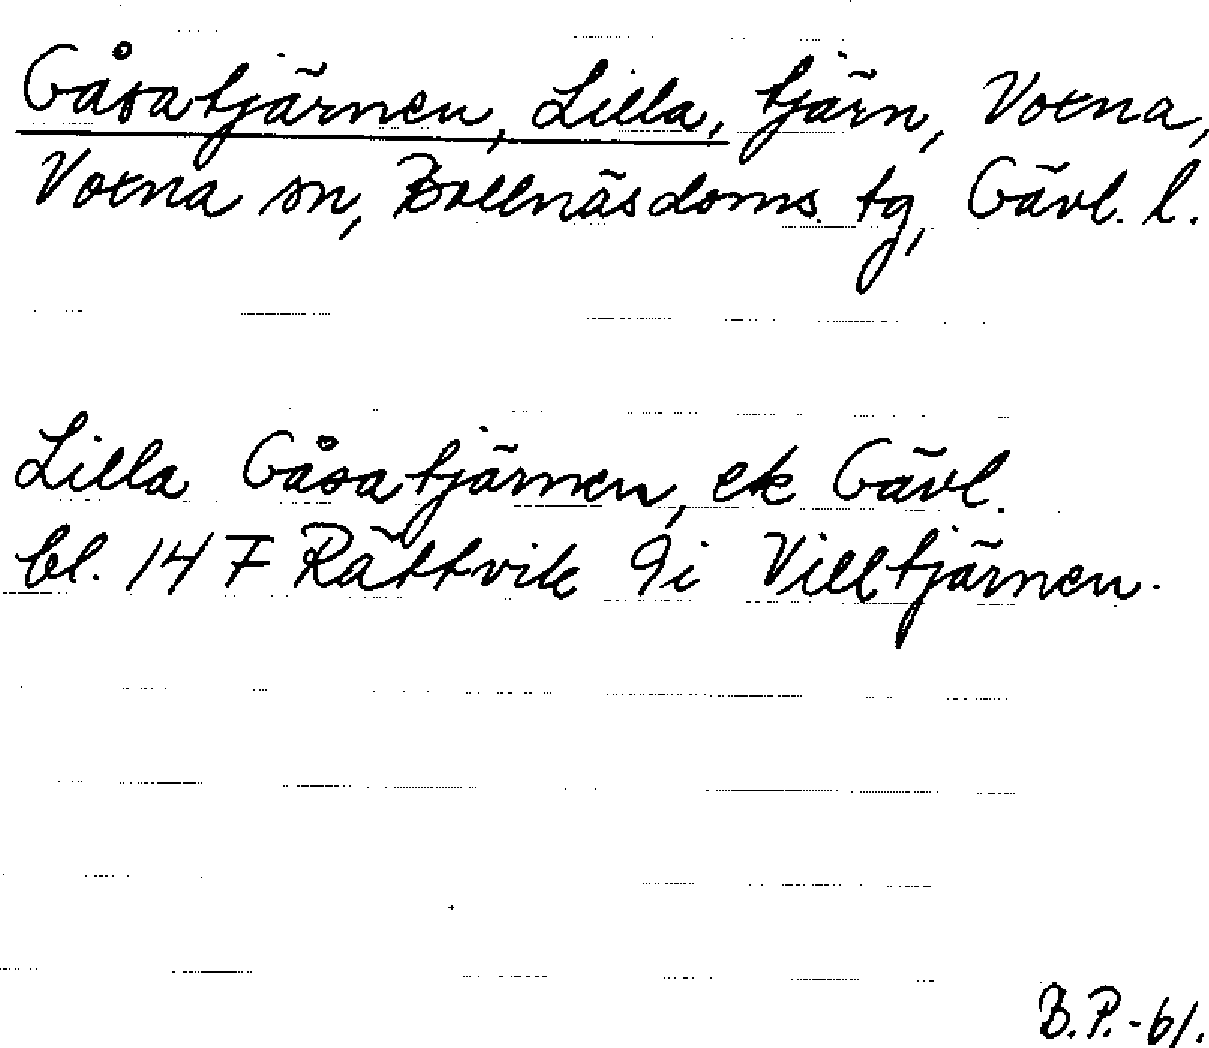 Gåsatjärnen, Lilla, tjärn, Voxna,
Voxna sn, Bollnäsdoms tg, Gävl. l.
Lilla Gåsatjärnen, ek Gävl.
bl. 147 Rättvik 9i Villtjärnen.
B.P.-61.